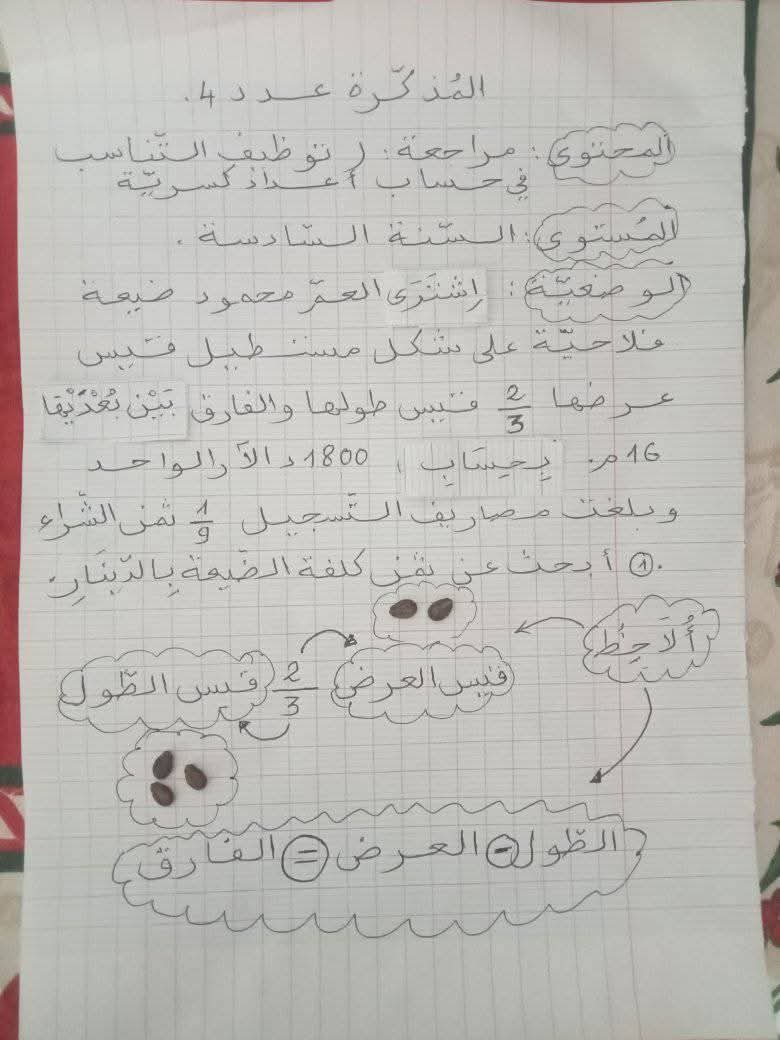 المُذكّرة عدد 4.
المحتوى: مراجعة: توظيف التّناسب
في حساب أعداد كسريّة
المُستوى: السّنة السّادسة.
الوضعيّة: اِشْتَرَى العمّ محمود ضيعة
فلاحيّة على شكل مستطيل قيس
عرضها 2/3 قيس طولها والفارق بَيْن بُعْدَيْهَا
16م. بِحِسَابِ 1800د الآر الواحد
وبلغت مصاريف التّسجيل 1/9 ثمن الشّراء
① أبحث عن ثمن كلفة الضّيعة بِالدّينَارِ.
أُلَاحِظُ
قيس العرض 2/3 قيس الطّول
الطّول - العرض = الفارق